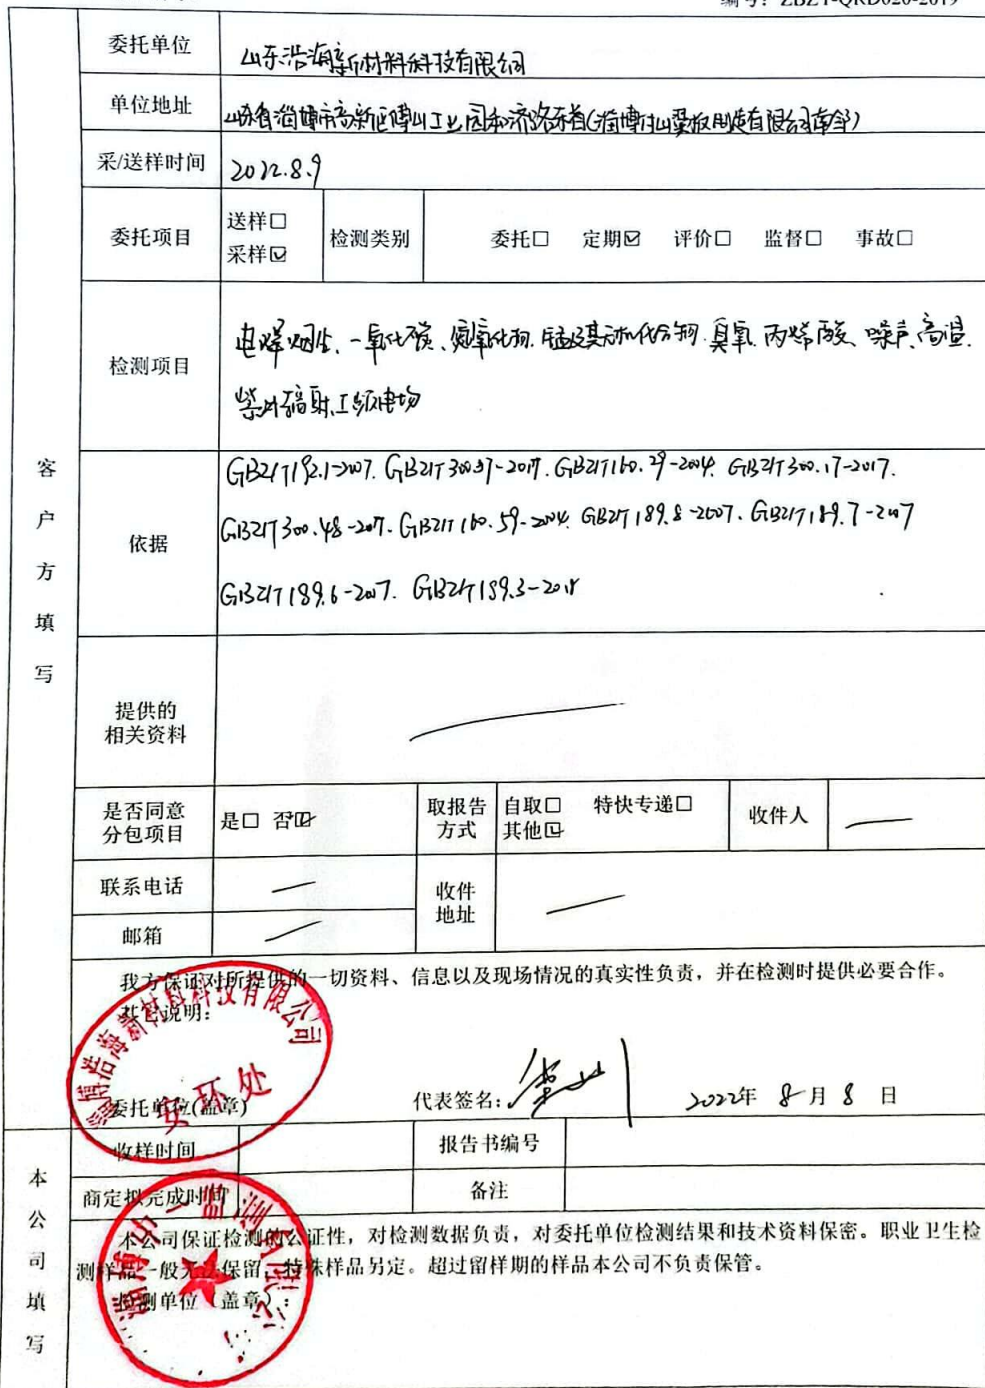 编号：ZBZY-QRD020-2019
委托单位 山东浩海新材料科技有限公司
单位地址 山东省淄博市高新区博山工业园和济路东首(淄博付山 有限公司南邻)
采/送样时间 2022.8.9
委托项目 送样☐ 采样☑ 检测类别 委托☐ 定期☑ 评价☐ 监督☐ 事故☐
检测项目 电焊烟尘、一氧化碳、氮氧化物、锰及其无机化合物、臭氧、丙烯酸、噪声、高温、
紫外辐射、工频电场
客户方填写
依据
GBZ/T192.1-2007. GBZ/T300.37-2017. GBZ/T160.29-2004. GBZ/T300.17-2017.
GBZ/T300.48-2017. GBZ/T160.59-2004. GBZ/T189.8-2007. GBZ/T189.7-2007
GBZ/T189.6-2007. GBZ/T189.3-2018
提供的
相关资料
是否同意
分包项目
是☐ 否☑
取报告
方式
自取☐ 特快专递☐
其他☑
收件人
联系电话
收件
地址
邮箱
我方保证对所提供的一切资料、信息以及现场情况的真实性负责，并在检测时提供必要合作。
其它说明：
浩海新材料科技有限公司
安环处
委托单位(盖章) 代表签名： 2022年 8月 8 日
收样时间 报告书编号
商定拟完成时间 备注
本公司填写
本公司保证检测的公证性，对检测数据负责，对委托单位检测结果和技术资料保密。职业卫生检
测样品一般无法保留，特殊样品另定。超过留样期的样品本公司不负责保管。
检测单位（盖章）：